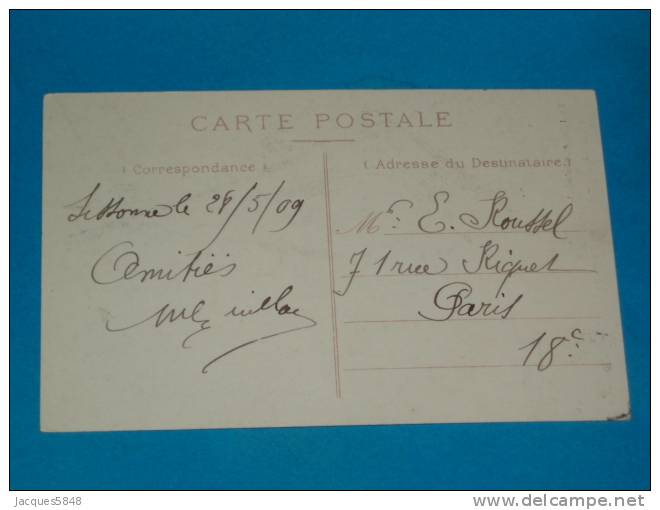 CARTE POSTALE
( Correspondance )
( Adresse du Destinataire )
Sissonne le 28/5/09
Amitiés
Mr. E. Roussel
71 rue Riquet
Paris
18e
Jacques5848
delcampe.net